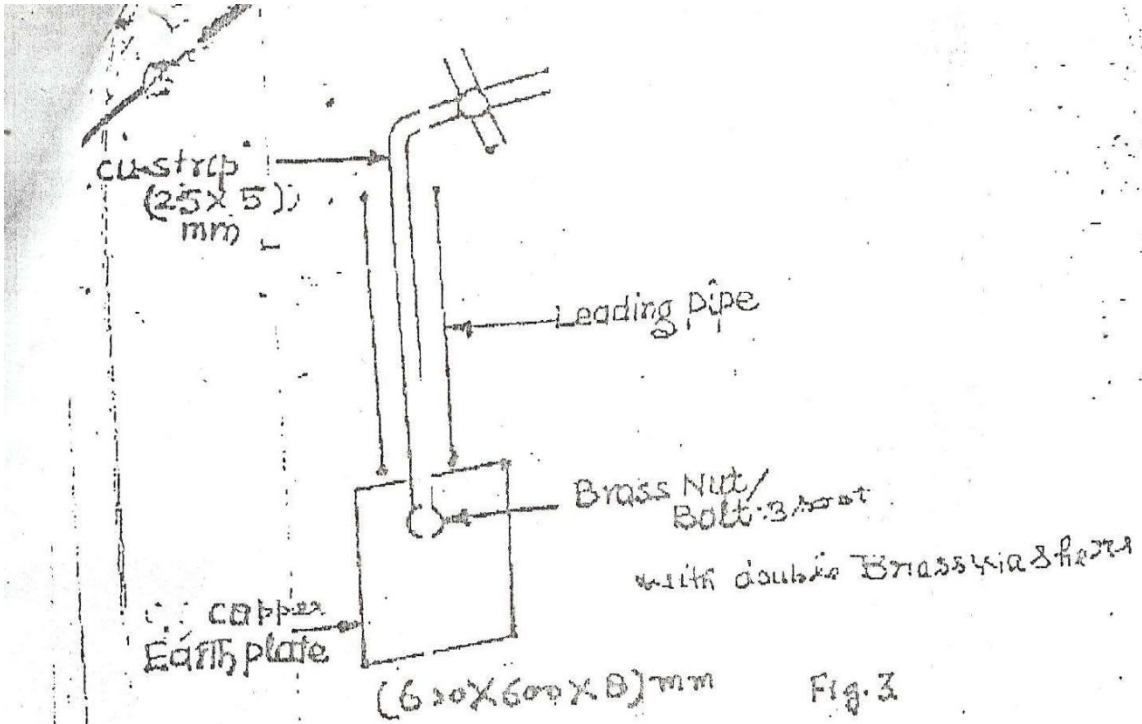 cu-strip
(25 X 5)
mm
Leading pipe
Brass Nut/
Bolt
with double Brass
copper
Earth plate
(600X600X8) mm
Fig. 3